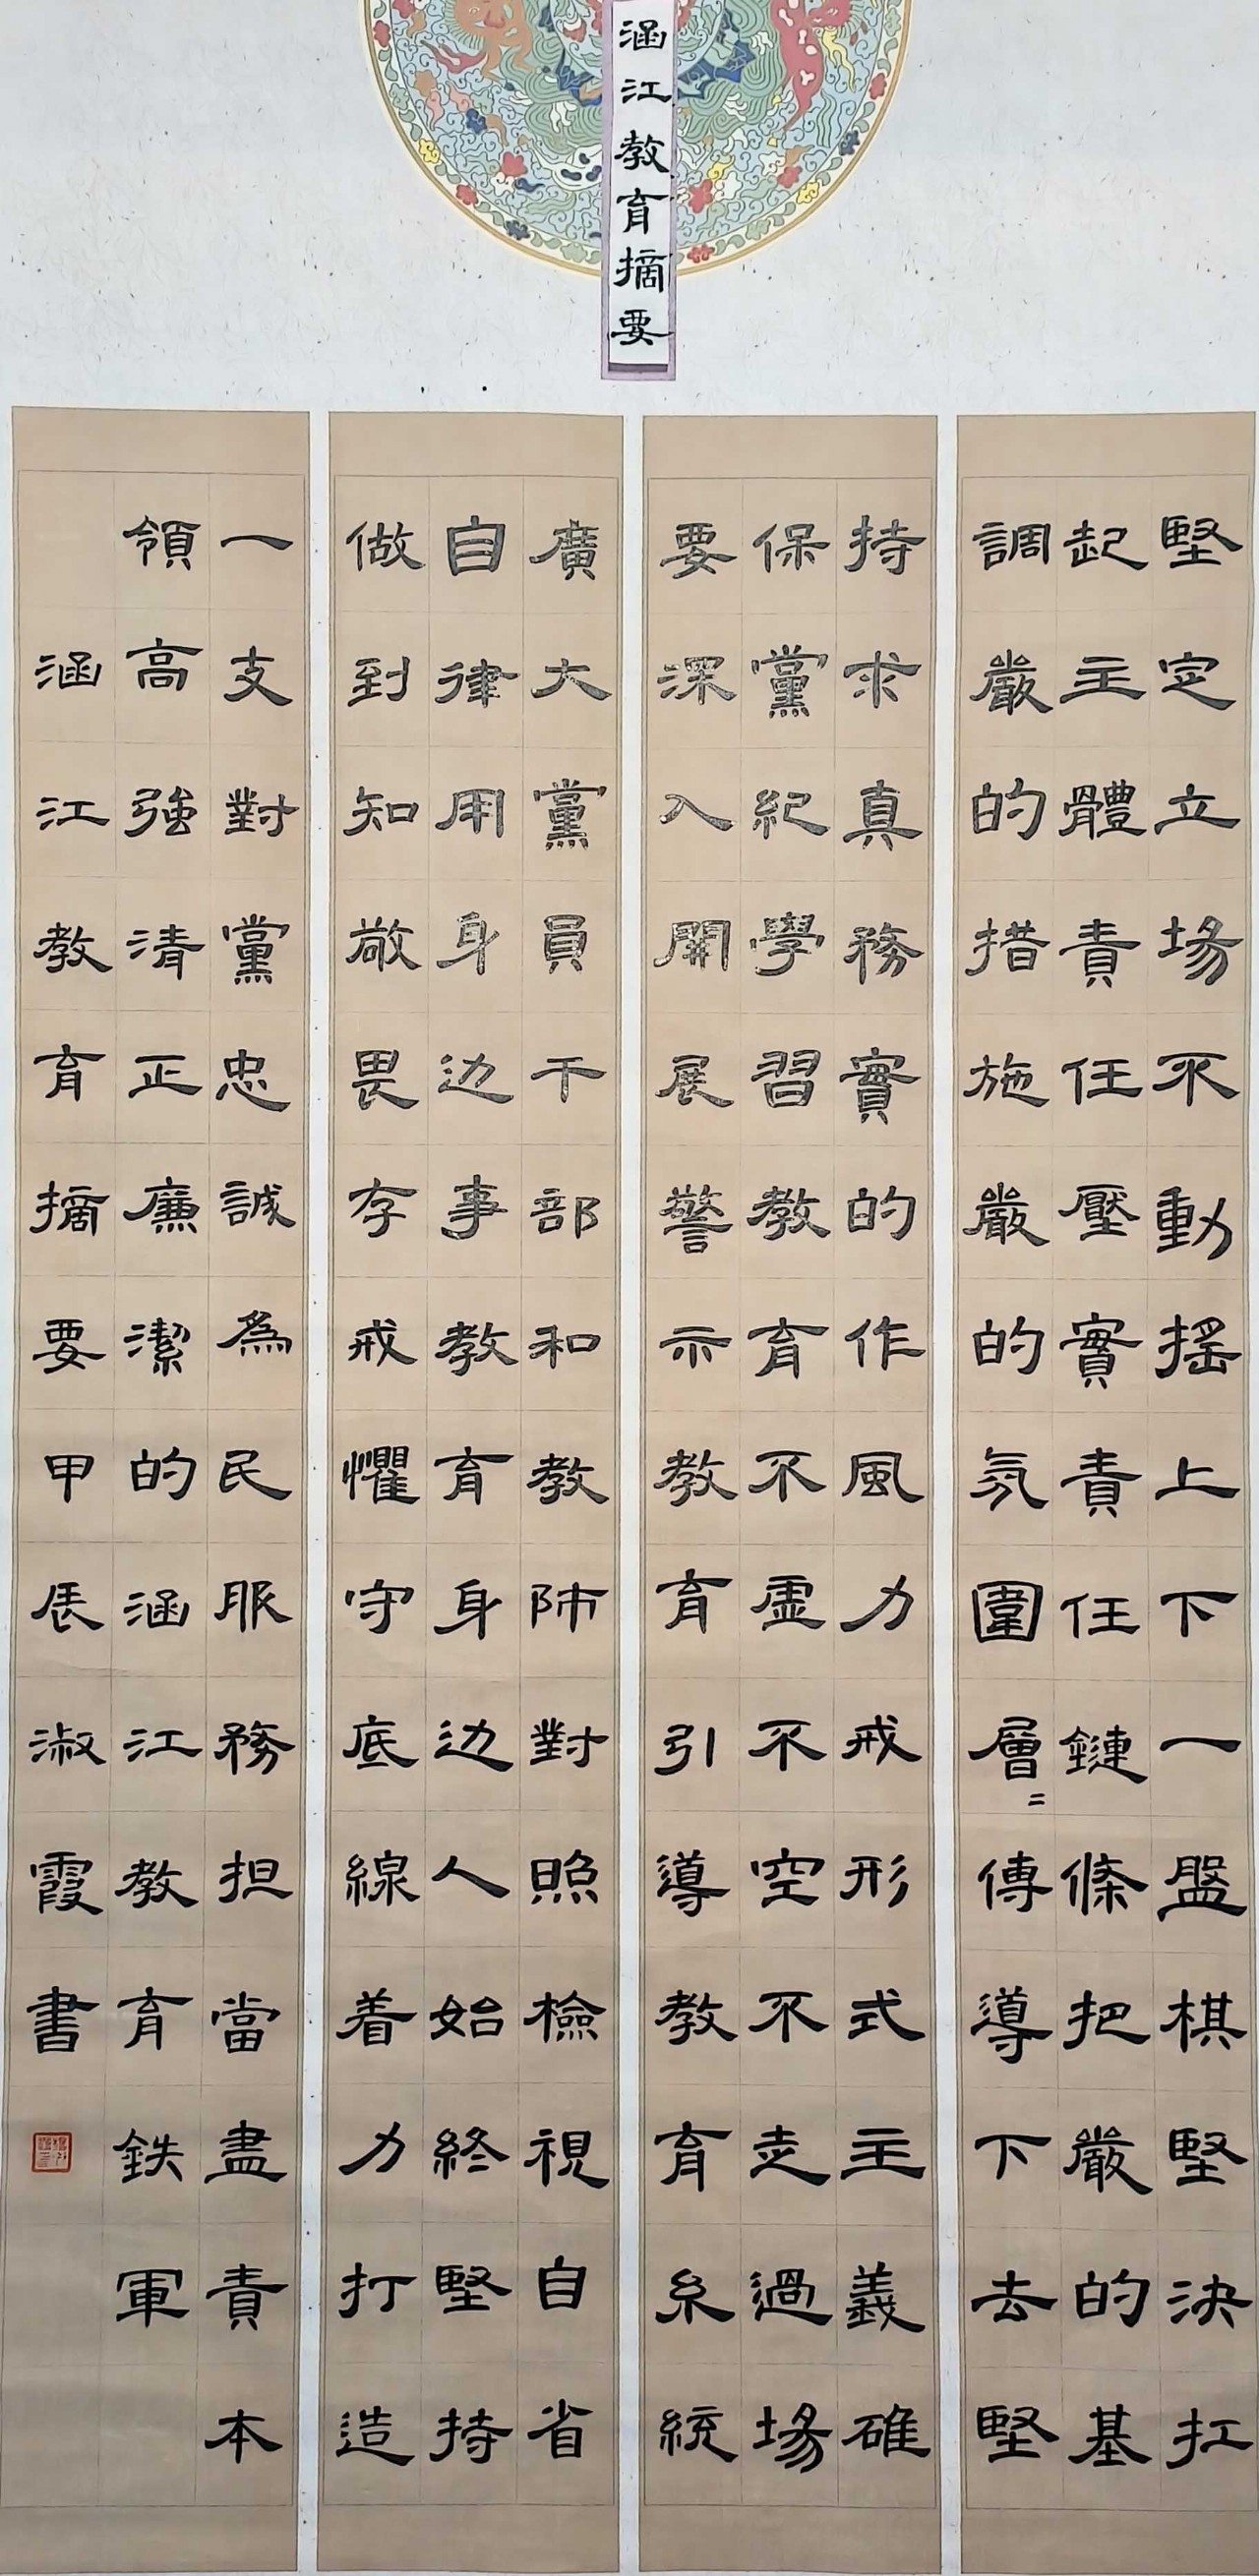 涵江教育摘要
堅定立場不動搖上下一盤棋堅決扛
起主體責任壓實責任鏈條把嚴的基
調嚴的措施嚴的氛圍層〻傳導下去堅
持求真務實的作風力戒形式主義確
保黨紀學習教育不虛不空不走過場
要深入開展警示教育引導教育系統
廣大黨員干部和教師對照檢視自省
自律用身边事教育身边人始終堅持
做到知敬畏存戒懼守底線着力打造
一支對黨忠誠為民服務担當盡責本
領高強清正廉潔的涵江教育鉄軍
涵江教育摘要甲辰淑霞書